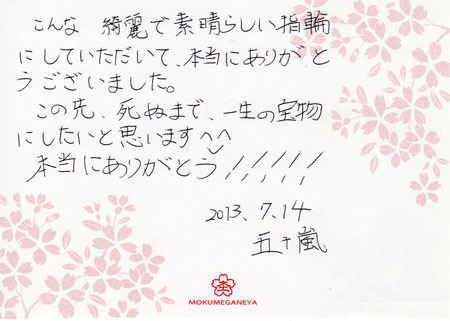 こんな 綺麗で素晴らしい指輪
にしていただいて、本当にありがと
うございました。
この先、死ぬまで、一生の宝物
にしたいと思います^^
本当にありがとう!!!!!
2013.7.14
五十嵐
MOKUMEGANEYA